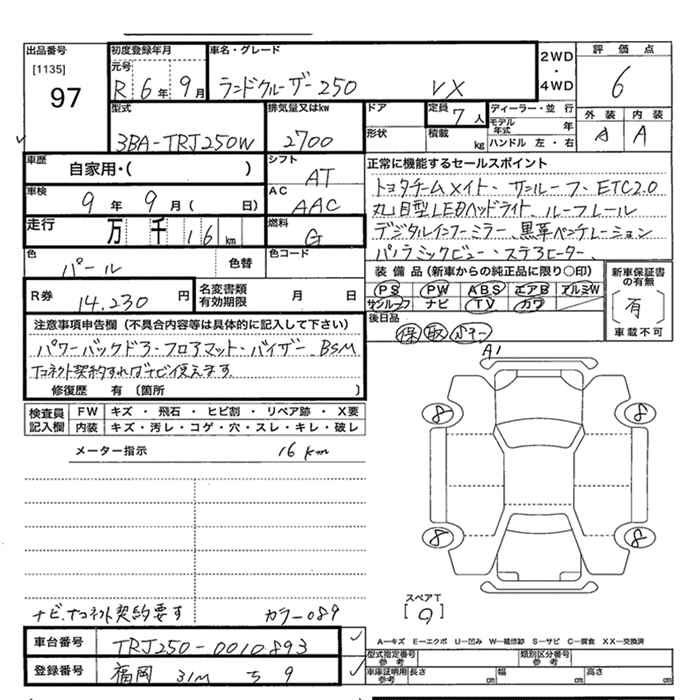 出品番号
[1135]
97
初度登録年月
元号
R 6 年 9 月
車名・グレード
ランドクルーザー250 VX
2WD
・
4WD
評価点
6
型式
3BA-TRJ250W
排気量又はkw
2700
ドア
形状
定員
7 人
積載
kg
ディーラー・並 行
モデル年式 年
ハンドル 左・右
外装 内装
A A
車歴
自家用・( )
シフト
AT
車検
9 年 9 月 ( 日)
AC
AAC
走行
万 千 16 km
燃料
G
色
パール
色替
色コード
R券
14,230 円
名変書類
有効期限
月 日
正常に機能するセールスポイント
トヨタチームメイト、サンルーフ、ETC2.0
丸目型LEDヘッドライト、ルーフレール
デジタルインナーミラー、黒革ベンチレーション
パノラミックビュー、ステアヒーター、
装 備 品 (新車からの純正品に限り○印)
PS PW ABS エアB アルミW
サンルーフ ナビ TV カワ
後日品
保 取
新車保証書
の有無
[ 有 ]
車載不可
注意事項申告欄 (不具合内容等は具体的に記入して下さい)
パワーバックドア・フロアマット・バイザー、BSM
Tコネクト契約すればナビ使えます
修復歴 有 〔箇所 〕
検査員
記入欄
FW キズ・飛石・ヒビ割・リペア跡・X要
内装 キズ・汚レ・コゲ・穴・スレ・キレ・破レ
メーター指示 16 km
A1
8 8
8 8
スペアT
[ 9 ]
ナビ、Tコネクト契約要す カラー089
車台番号 TRJ250-0010893
登録番号 福岡 31M ち 9
A―キズ E―エクボ U―凹ミ W―補修跡 S―サビ C―腐食 XX―交換済
型式指定番号
参考
類別区分番号
参考
車庫証明用
参考
長さ cm 幅 cm 高さ cm